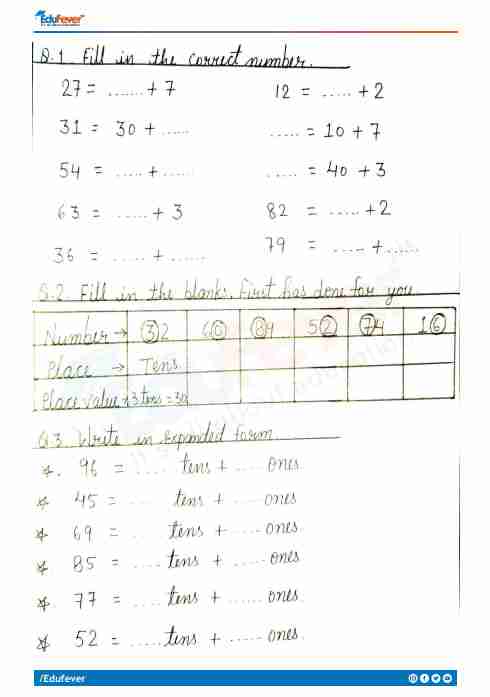 EduFever
Q.1 Fill in the correct number.
27 = ....... + 7 12 = ..... + 2
31 = 30 + ...... ..... = 10 + 7
54 = ..... + ...... ...... = 40 + 3
63 = ..... + 3 82 = ..... + 2
36 = ..... + ...... 79 = ..... + .....
Q.2 Fill in the blanks. First has done for you.
Number → 32 60 84 52 74 16
Place → Tens
Place value → 3 tens = 30
Q.3. Write in Expanded form
96 = .... tens + .... ones
45 = ... tens + ..... ones
69 = ... tens + ..... ones.
85 = .... tens + .... ones
77 = .... tens + ...... ones.
52 = ..... tens + ..... ones.
/Edufever